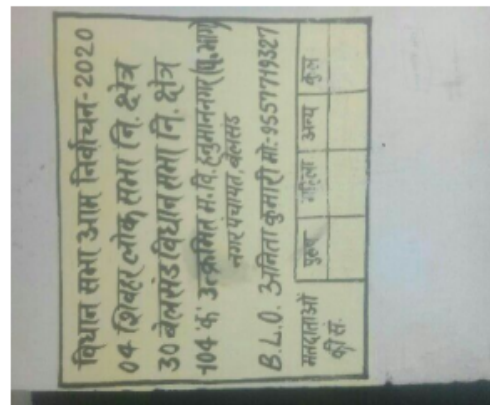 विधान सभा आम निर्वाचन-2020
04 शिवहर लोक सभा नि. क्षेत्र
30 बेलसंड विधान सभा नि. क्षेत्र
104 'क' उत्क्रमित म. वि. हनुमाननगर (पू. भाग)
नगर पंचायत, बेलसंड
B.L.O. अनिता कुमारी मो:-9557719327
मतदाताओं की सं. पुरुष महिला अन्य कुल